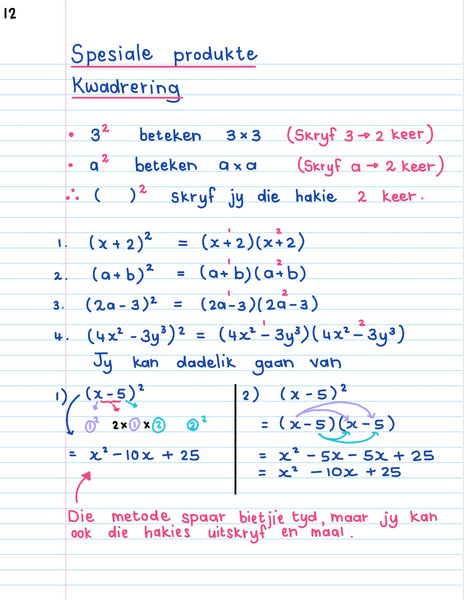 12
Spesiale produkte
Kwadrering
• 3² beteken 3 × 3 (Skryf 3 → 2 keer)
• a² beteken a × a (Skryf a → 2 keer)
∴ ( )² skryf jy die hakie 2 keer.
1. (x + 2)² = (x + 2)(x + 2)
1 2
2. (a + b)² = (a + b)(a + b)
1 2
3. (2a - 3)² = (2a - 3)(2a - 3)
1 2
4. (4x² - 3y³)² = (4x² - 3y³)(4x² - 3y³)
1 2
Jy kan dadelik gaan van
1) (x - 5)²
①² 2 × ① × ② ②²
= x² - 10x + 25
2) (x - 5)²
= (x - 5)(x - 5)
= x² - 5x - 5x + 25
= x² - 10x + 25
Die metode spaar bietjie tyd, maar jy kan
ook die hakies uitskryf en maal.